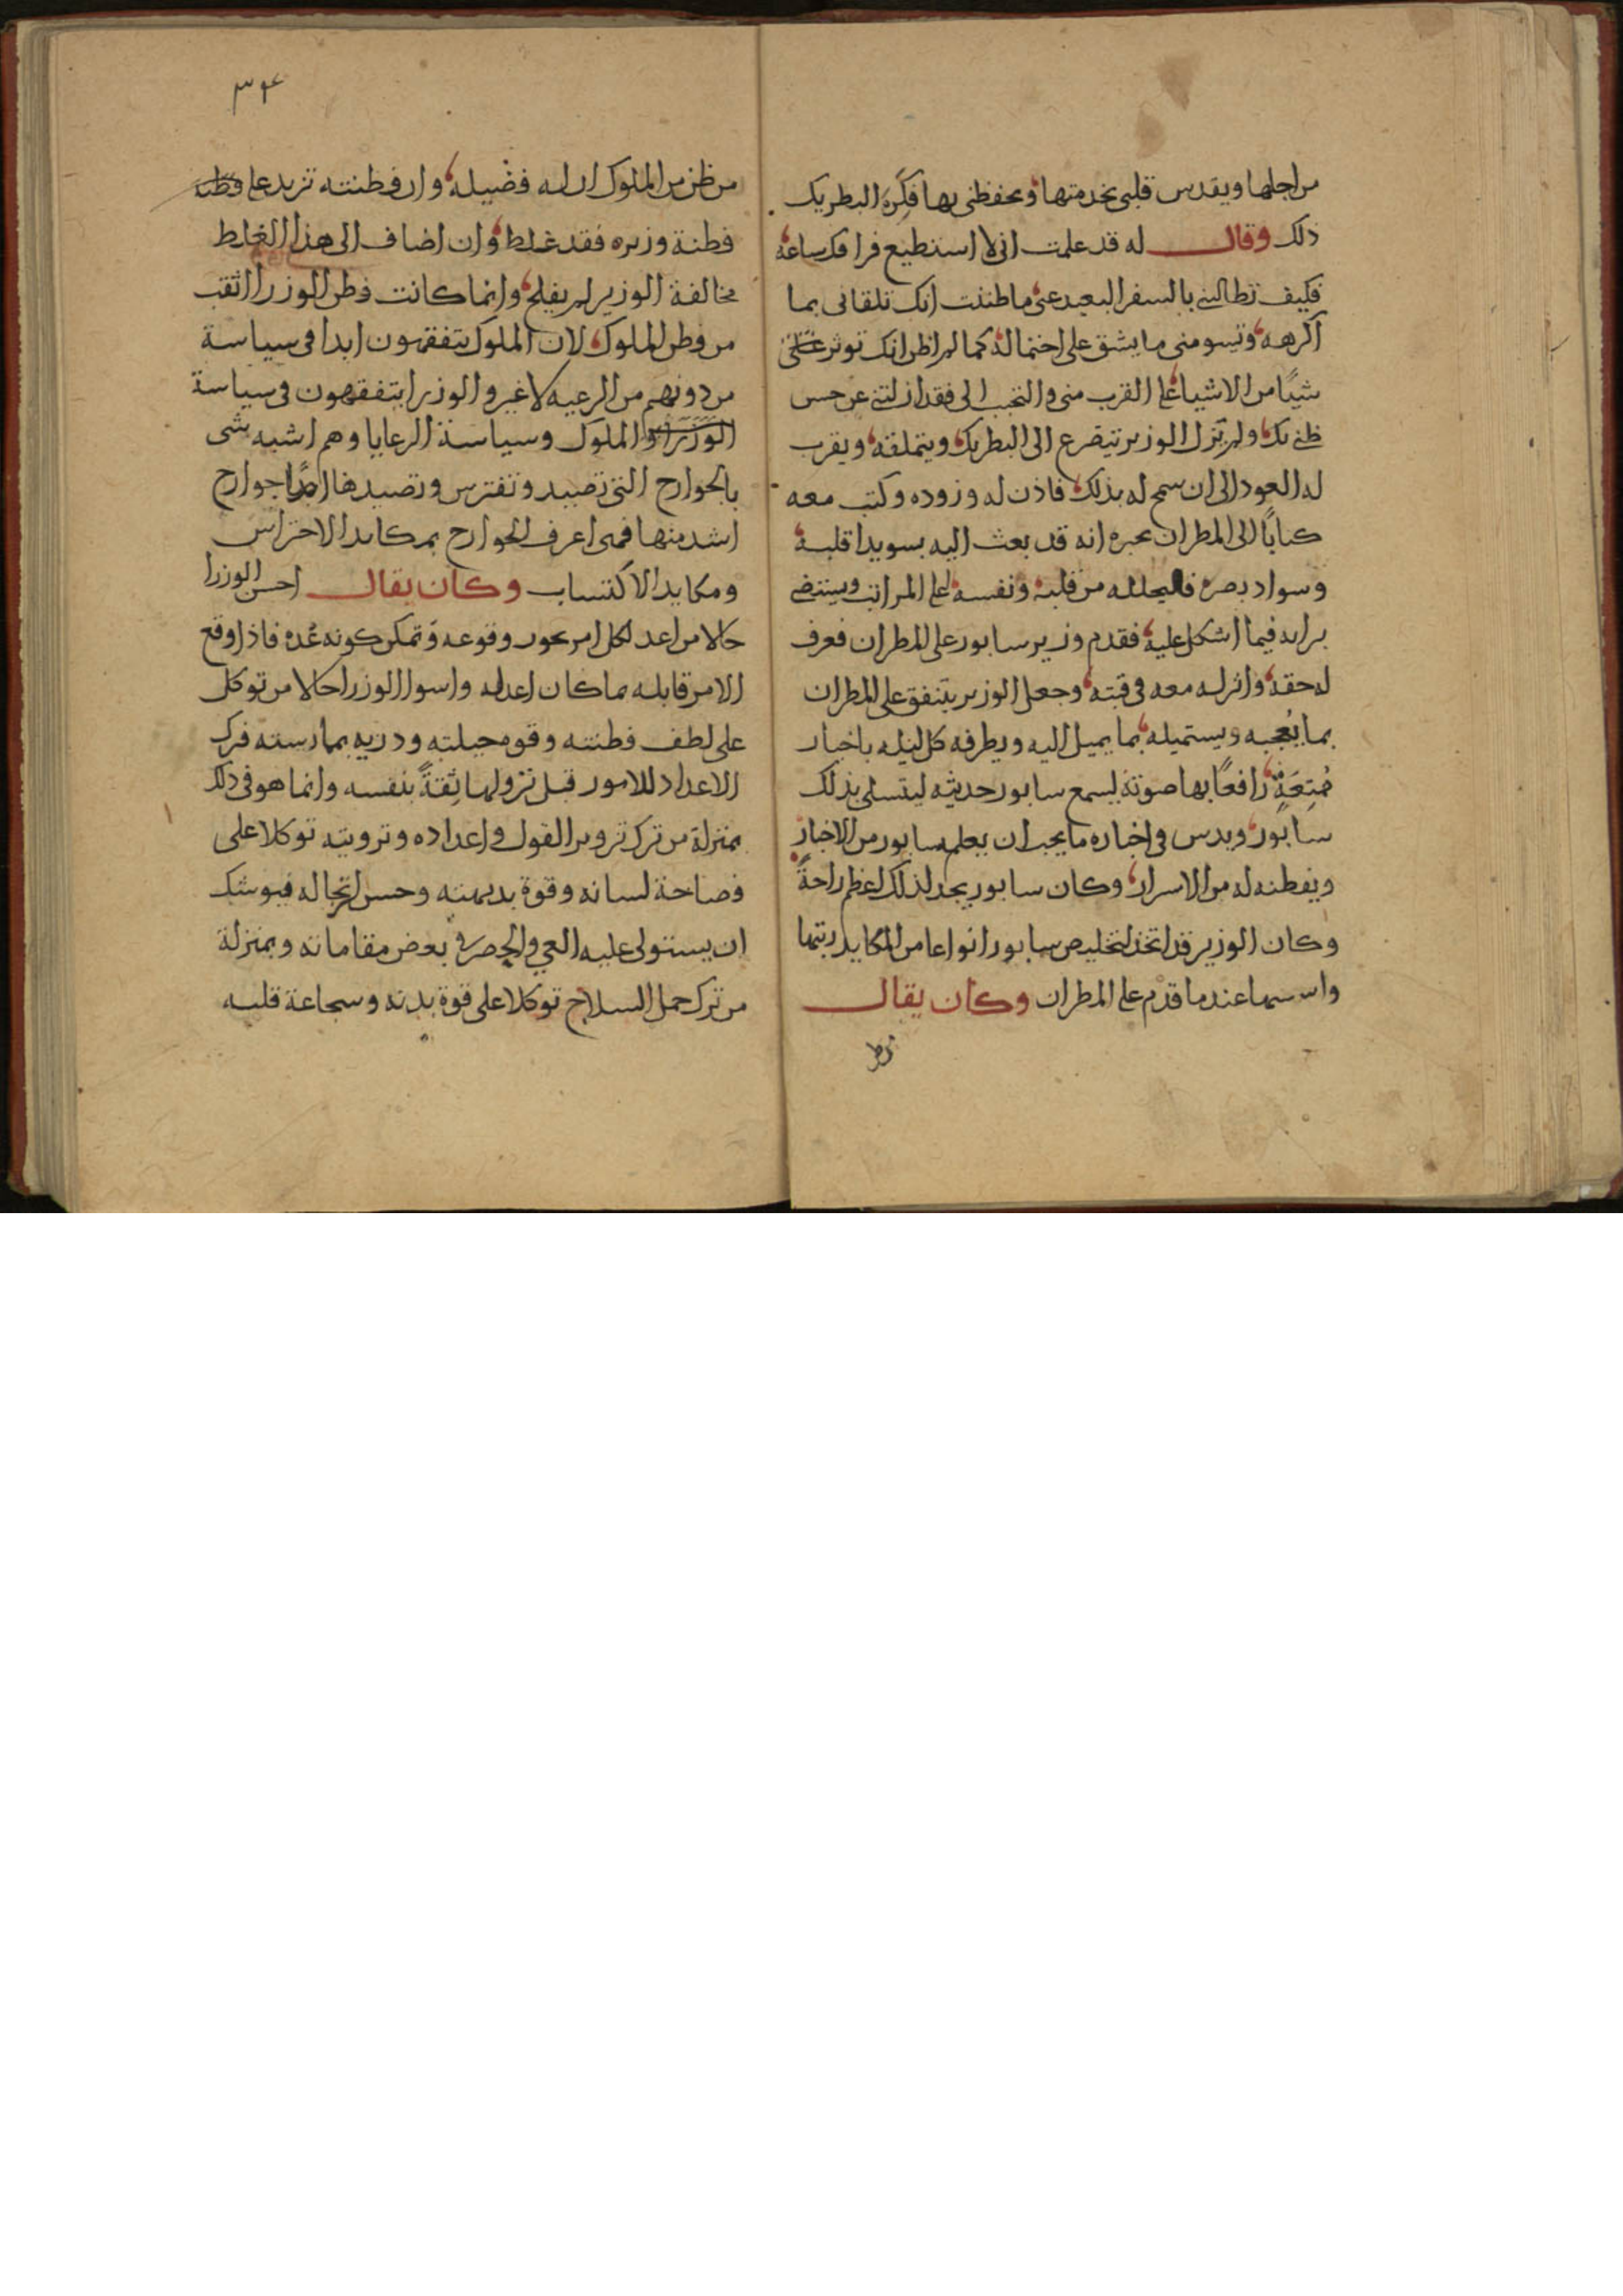 من اجلها ويقدس قلبى بخدمتها وبحفظى بها فكره البطريك
ذلك وقال له قد علمت انى لا استطيع فراقك ساعة
فكيف تطالبنى بالسفر البعيد عنى ما ظننت انك تلقانى بما
اكرهه وتسومنى ما يشق على احتماله كما لم اظن انك توثر على
شيًا من الاشيا على القرب منى والتحبب الى فقد ازلتنى عن حسن
ظنى بك ولم يزل الوزير يتضرع الى البطريك ويتملقه ويقرب
له العود الى ان سمح له بذلك فاذن له وزوده وكتب معه
كتابًا الى المطران يخبره انه قد بعث اليه بسويدا قلبه
وسواد بصره فليحلله من قلبه ونفسه اعلى المراتب ويستضى
برايه فيما اشكل عليه فقدم وزير سابور على المطران فعرف
له حقه وانزله معه فى قبته وجعل الوزير يتنفق على المطران
بما يُعجبه ويستميله بما يميل اليه ويطرفه كل ليله باخبار
مُمتِعَةٍ رافعًا بها صوته ليسمع سابور حديثه ليتسلى بذلك
سابور ويدس فى اخباره ما يحب ان يعلمه سابور من الاخبار
ويفطنه له من الاسرار وكان سابور يجد لذلك اعظم راحةً
وكان الوزير قد اتخذ لتخليص سابور انواعا من المكايد رتبها
واسسها عندما قدم على المطران وكان يقال
من ظن
٣٤
من ظن من الملوك ان له فضيله وان فطنته تزيد على فطنه
فطنة وزيره فقد غلط وان اضاف الى هذا الغلط
مخالفة الوزير لم يفلح وانما كانت فطن الوزرا اثقب
من فطن الملوك لان الملوك يتفقهون ابدا فى سياسة
من دونهم من الرعيه لا غير والوزرا يتفقهون فى سياسة
الوزرا والملوك وسياسة الرعايا وهم اشبه شى
بالجوارح التى تصيد وتفترس وتصيدها ايضًا جوارح
اشد منها فهى اعرف الجوارح بمكايد الاحتراس
ومكايد الاكتساب وكان يقال احسن الوزرا
حالا من اعد لكل امر يجوز وقوعه وتمكن كونه عُده فاذا وقع
الامر قابله بما كان اعد له واسوا الوزرا حالا من توكل
على لطف فطنته وقوة حيلته ودربه بممارسته فترك
الاعداد للامور قبل نزولها ثِقَةً بنفسه وانما هو فى ذلك
بمنزلة من ترك تزوير القول واعداده وترويته توكلا على
فصاحة لسانه وقوة بديهته وحسن ارتجاله فيوشك
ان يستولى عليه العي والحصر فى بعض مقاماته وبمنزلة
من ترك حمل السلاح توكلا على قوة بدنه وشجاعة قلبه